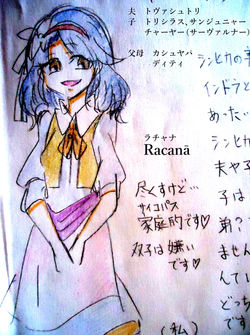 夫　トヴァシュトリ
子　トリシラス、サンジュニャー
チャーヤー(サーヴァルナー)
父母　カシュヤパ
ディティ
ラチャナ
Racanā
尽くすけど…
サイコパス
家庭的です♡
双子は嫌い
です♡
(私)
シンヒカの
インドラと
あった…
シン
夫や子
子は
弟?
ません
んてい
どっち
です